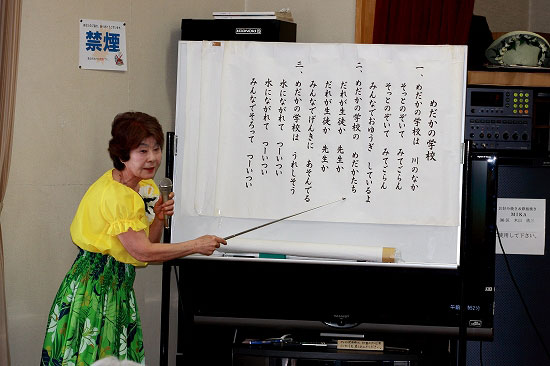 禁煙
めだかの学校
一、めだかの学校は 川のなか
そっとのぞいて みてごらん
そっとのぞいて みてごらん
みんなでおゆうぎ しているよ
二、めだかの学校の めだかたち
だれが生徒か 先生か
だれが生徒か 先生か
みんなでげんきに あそんでる
三、めだかの学校は うれしそう
水にながれて つーいつい
水にながれて つーいつい
みんなでそろって つーいつい
MIKA
使用して下さい。